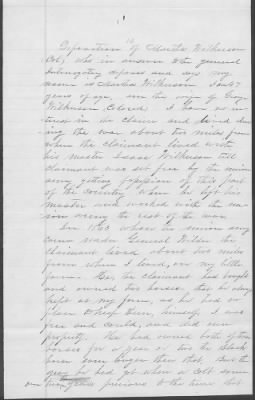 Deposition of Martha Wilkerson
Col, who in answer to the general
Interrogatory deposes and says my
name is Martha Wilkerson I am 47
years of age, am the wife of George
Wilkerson, Colored. I have no in-
terest in the claim and lived dur-
ing the war about two miles from
where the claimant lived with
his master Isaac Wilkerson till
claimant was set free by the union
army getting possession of this part
of the country, when he left his
master and worked with the
army the rest of the war
In 1863 when the union army
came under General Wilder the
claimant lived about two miles
from where I lived, on my little
farm. He, the claimant had bought
and owned two horses, that he always
kept at my farm, as he had no
place to keep them, himself, I was
free and could, and did own
property. He had owned both of these
horses for a year or two the black
horse even longer than that. But the
gray he had got when a colt some
two years previous to the time that